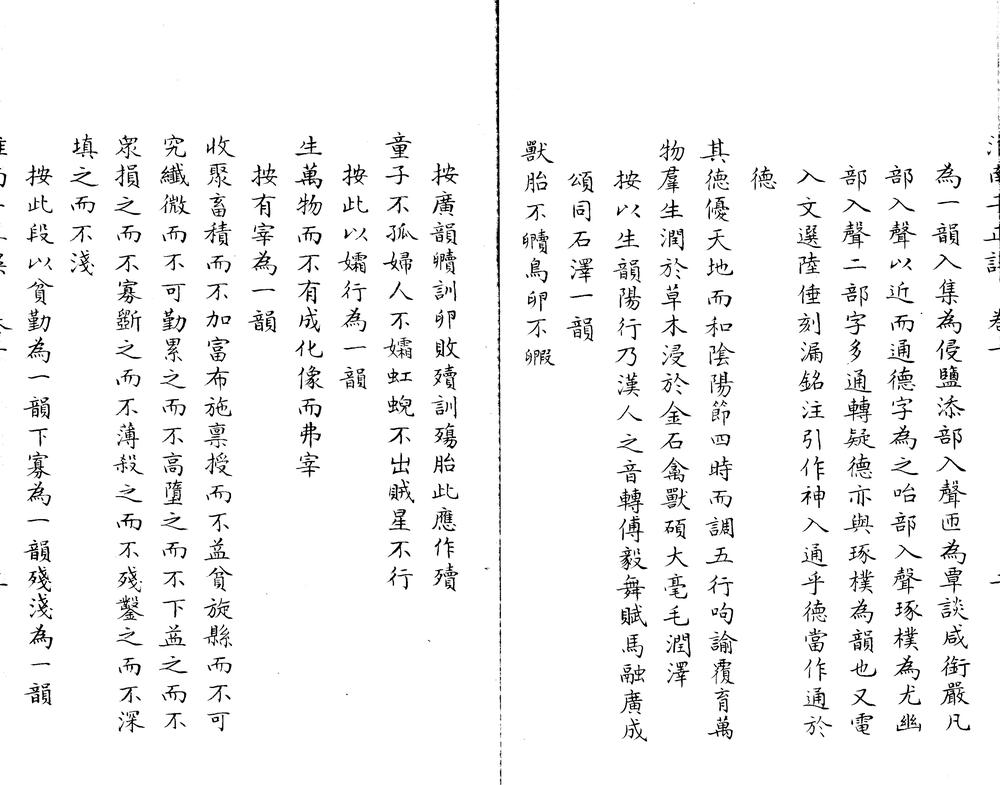 為一韻入集為侵鹽添部入聲匝為覃談咸銜嚴凡
部入聲以近而通德字為之咍部入聲琢樸為尤幽
部入聲二部字多通轉疑德亦與琢樸為韻也又電
入文選陸倕刻漏銘注引作神入通乎德當作通於
德
其德優天地而和陰陽節四時而調五行呴諭覆育萬
物羣生潤於草木浸於金石禽獸碩大毫毛潤澤
按以生韻陽行乃漢人之音轉傅毅舞賦馬融廣成
頌同石澤一韻
獸胎不㱩鳥卵不毈
按廣韻㱩訓卵敗殰訓殤胎此應作殰
童子不孤婦人不孀虹蜺不出賊星不行
按此以孀行為一韻
生萬物而不有成化像而弗宰
按有宰為一韻
收聚畜積而不加富布施禀授而不益貧旋縣而不可
究纖微而不可勤累之而不高墮之而不下益之而不
衆損之而不寡斵之而不薄殺之而不殘鑿之而不深
填之而不淺
按此段以貧勤為一韻下寡為一韻殘淺為一韻